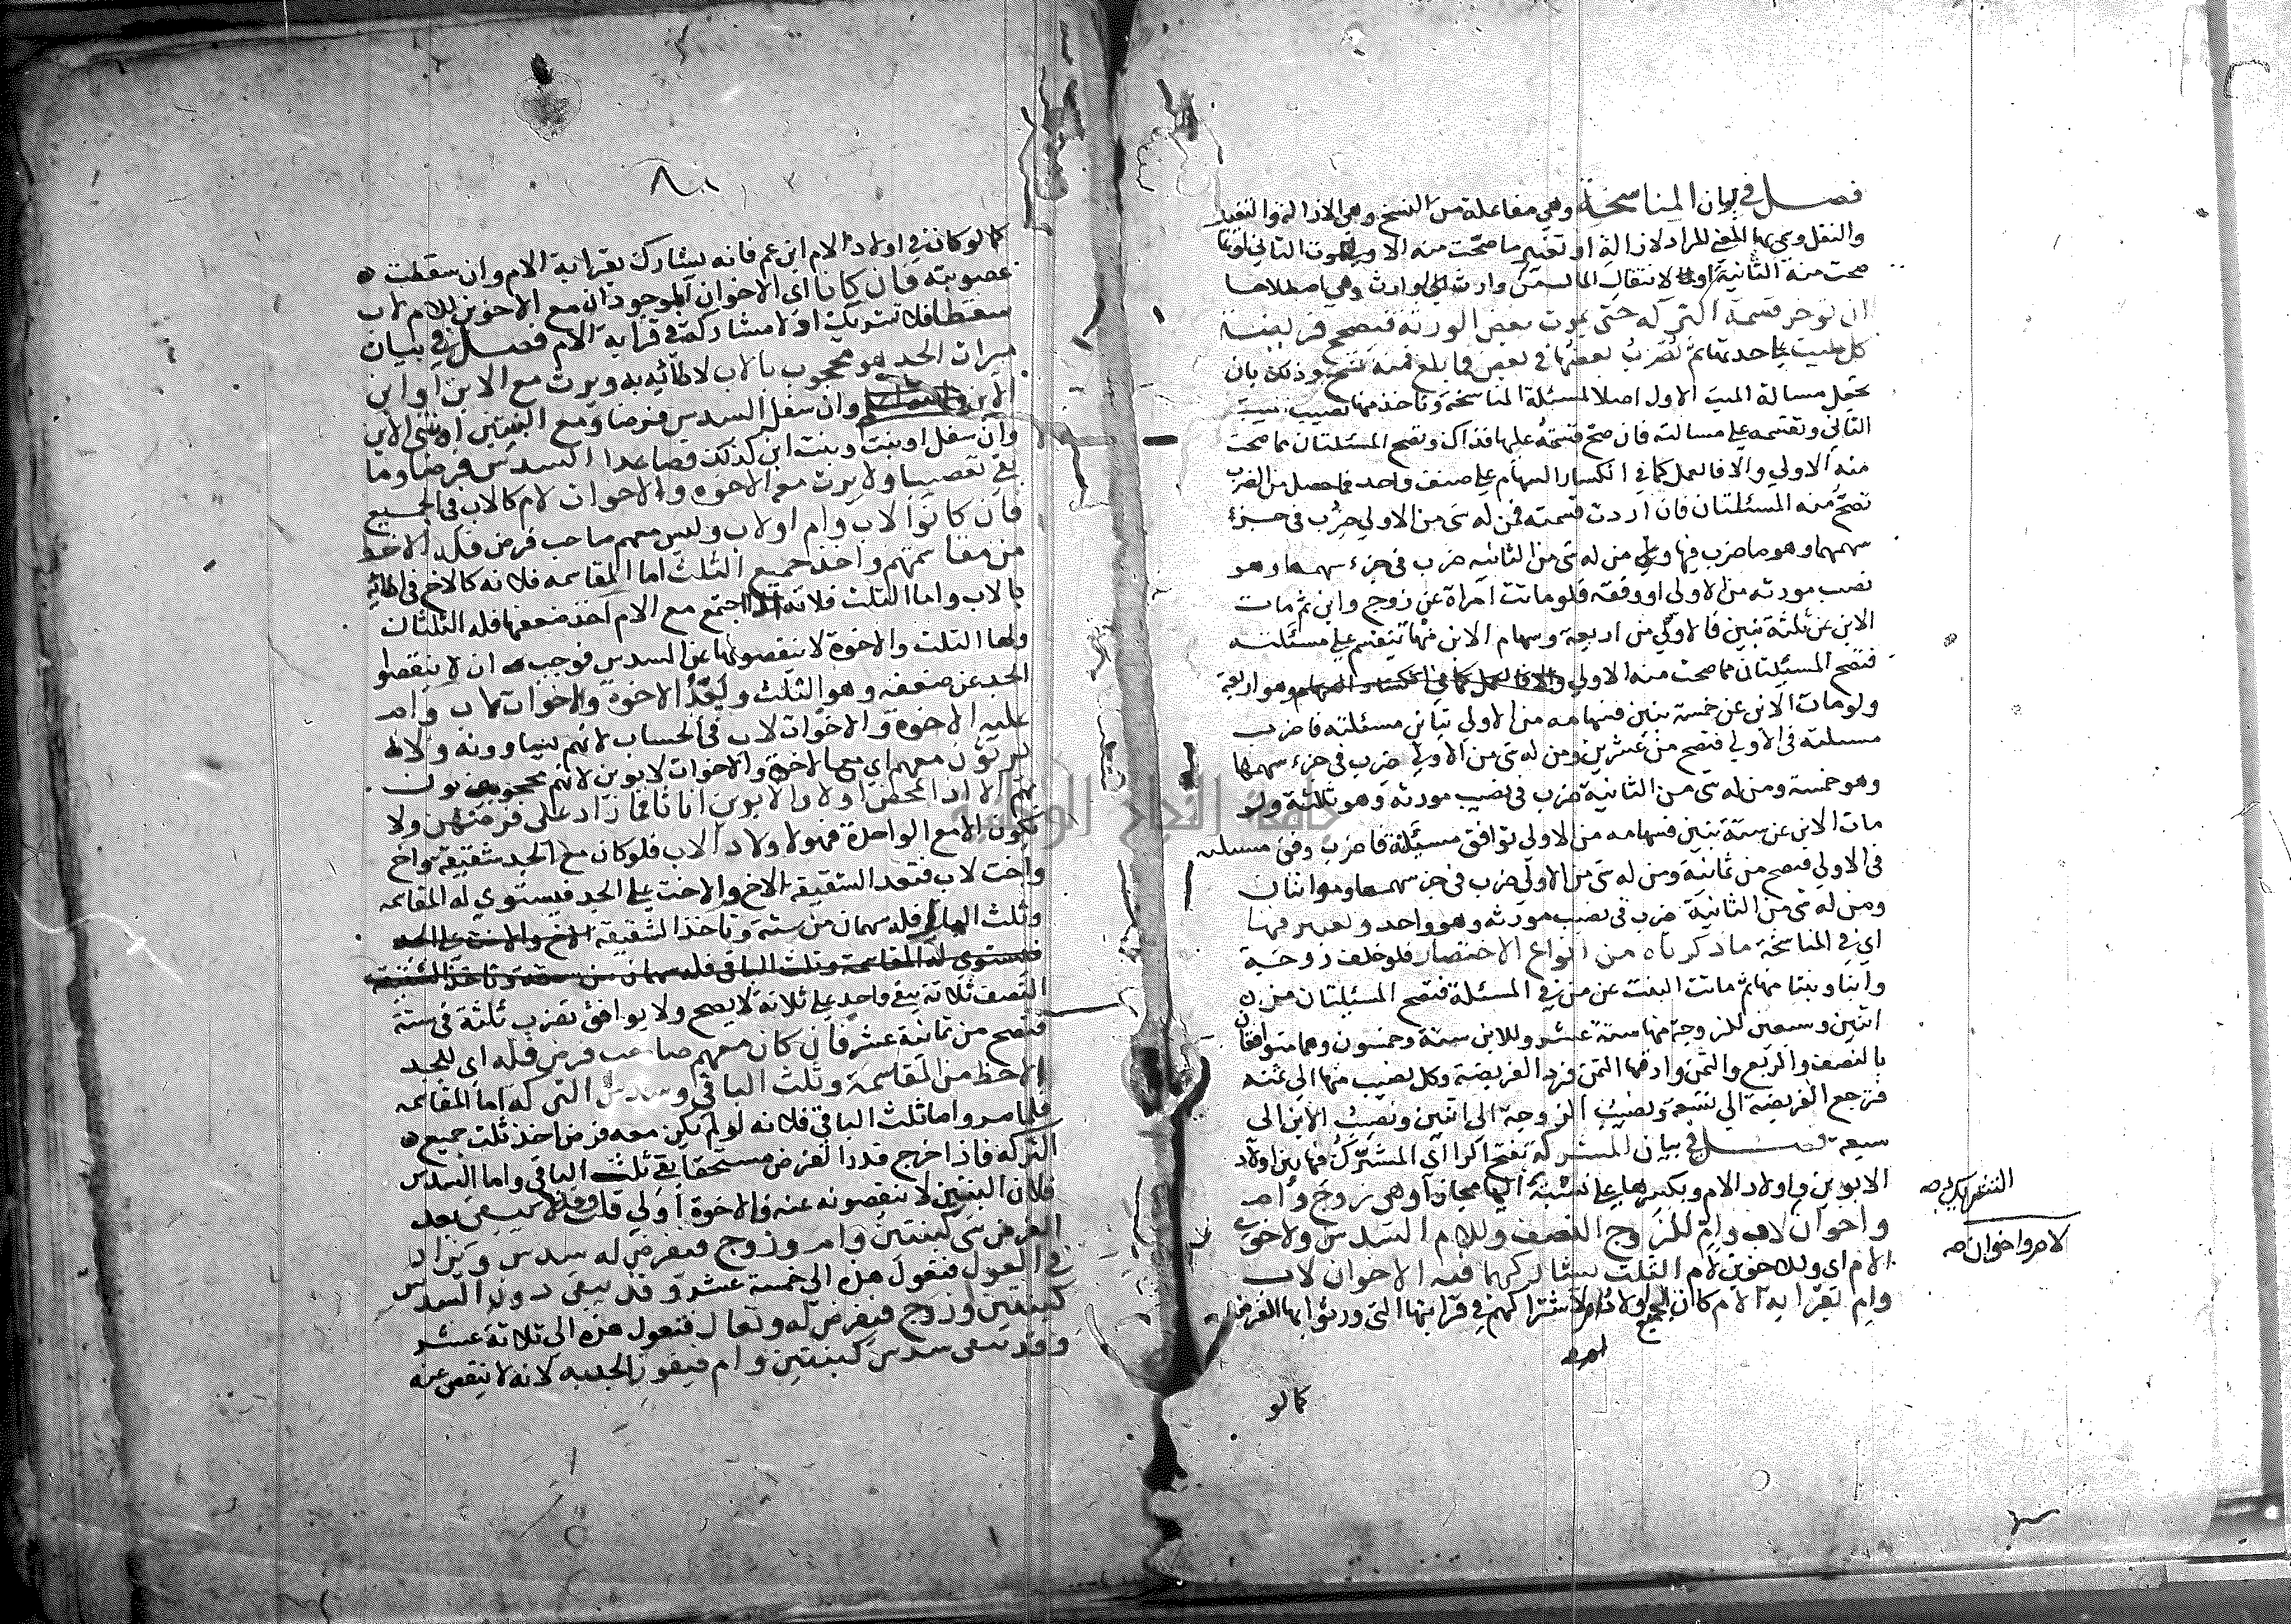 فصــل في بيان المناسخة وهي مفاعلة من النسخ وهو الازالة والتغيير
والنقل وسمي بها المعنى المراد لازالة او تغيير ما صحت منه الاولى بموت الثاني او بما
صحت منه الثانية او لانتقال المال من وارث الى وارث وهي اصطلاحا
ان تؤخر قسمة التركه حتى يموت بعض الورثة فتصحح فريضة
كل ميت على حدتها ثم تضرب بعضها في بعض فما بلغ فمنه تصح وذلك بان
تجعل مسالة الميت الاول اصلا لمسئلة المناسخة وتاخذ منها نصيب الميت
الثاني وتقسمه على مسالته فان صح قسمته عليها فذاك وتصح المسئلتان مما صحت
منه الاولى والا فالعمل كما في انكسار السهام على صنف واحد فما حصل من الضرب
تصح منه المسئلتان فان اردت قسمته فمن له شى من الاولى ضرب في جزء
سهمها وهو ما ضرب فيها ومن له شى من الثانيه ضرب في جزء سهمها وهو
نصيب مورثه من الاولى او وفقه فلو ماتت امراة عن زوج وابن ثم مات
الابن عن ثلثة بنين فالاولى من اربعة وسهام الابن منها تنقسم على مسئلته
فتصح المسئلتان مما صحت منه الاولى والا فالعمل كما في انكسار السهام وهو اربعة
ولو مات الابن عن خمسة بنين فسهامه من الاولى تباين مسئلته فاضرب
مسئلته في الاولى فتصح من عشرين ومن له شى من الاولى ضرب في جزء سهمها
وهو خمسة ومن له شى من الثانية ضرب في نصيب مورثه وهو ثلثة ولو
مات الابن عن ستة بنين فسهامه من الاولى توافق مسئلته فاضرب وفق مسئلته
في الاولى فتصح من ثمانية ومن له شى من الاولى ضرب في جزء سهمها وهو اثنان
ومن له شى من الثانية ضرب في نصيب مورثه وهو واحد ولعبر فيها
اي في المناسخة ما ذكرناه من انواع الاختصار فلو خلف زوجة
وابنا وبنتا منها ثم ماتت البنت عن من في المسئلة فتصح المسئلتان من
اثنين وسبعين للزوجة منها ستة عشر وللابن ستة وخمسون وهما متوافقان
بالنصف والربع والثمن وادقها الثمن فرد الفريضة وكل نصيب منها الى ثمنه
فترجع الفريضة الى تسعة ونصيب الزوجة الى اثنين ونصيب الابن الى
سبعة فصــل في بيان المشركة بفتح الرا اي المشترك فيها بين اولاد
الابوين واولاد الام وبكسرها على نسبة اليها مجازا وهي زوج وام
التشريك صح
واخوان لاب وام للزوج النصف وللام السدس ولاخوى
لام واخوان صح
الام اي وللاخوين لام الثلث يشاركهما فيه الاخوان لاب
وام بقرابة الام كان الجميع اولاد ام لاشتراكهم في قرابتها التي ورثوا بها الفرض
كما لو
كما لو كان في اولاد الام ابن عم فانه يشارك بقرابة الام وان سقطت
عصوبته فان كانا اي الاخوان الموجودان مع الاخوين للام لاب
سقطا فلا تشريك اذ لا مشاركة في قرابة الام فصــل في بيان
ميراث الجد هو محجوب بالاب لادلائه به ويرث مع الابن او ابن
الابن وان سفل السدس فرضا ومع البنتين او بنتى الابن
وان سفل او بنت وبنت ابن كذلك فصاعدا السدس فرضا وما
بقى تعصيبا ولا يرث معه الاخوه والاخوات لام كالاب في الجميع
فان كانوا لاب وام او لاب وليس معهم صاحب فرض فله الاحظ
من مقاسمتهم واخذ جميع الثلث اما المقاسمه فلانه كالاخ في ادلائه
بالاب واما الثلث فلانه اذا اجتمع مع الام اخذ ضعفها فله الثلثان
ولها الثلث والاخوة لا ينقصونها عن السدس فوجب ان لا ينقصوا
الجد عن ضعفه وهو الثلث ويعد الاخوة والاخوات لاب وام
عليه الاخوة والاخوات لاب في الحساب لانهم يساوونه ولا
يرثون معهم اي مع الاخوة والاخوات لابوين لانهم محجوبون
بهم الا اذا تمحض اولاد الابوين اناثا فما زاد على فرضهن ولا
تكون الا مع الواحدة فهو لاولاد الاب فلو كان مع الجد شقيقة واخ
واخت لاب فتعد الشقيقة الاخ والاخت على الجد فيستوي له المقاسمه
وثلث الباقى فله سهمان من ستة وتاخذ الشقيقة الاخ والاخت على الجد
فيستوى له المقاسمة وثلث الباقى فله سهمان من ستة وتاخذ الشقيقة
النصف ثلاثة يبقى واحد على ثلاثة لا يصح ولا يوافق تضرب ثلثة في ستة
فتصح من ثمانية عشر فان كان معهم صاحب فرض فله اي للجد
الاحظ من المقاسمة وثلث الباقي وسدس التركه اما المقاسمه
فلما مر واما ثلث الباقي فلانه لو لم يكن معه فرض اخذ ثلث جميع
التركه فاذا خرج قدر الفرض مستحقا بقي ثلث الباقي واما السدس
فلان البنتين لا ينقصونه عنه فالاخوة اولى قلت وقد لا يبقى بعد
الفرض شى كبنتين وام وزوج فيفرض له سدس ويزاد
في العول فتعول هذه الى خمسة عشر وقد يبقى دون السدس
كبنتين وزوج فيفرض له وتعال فتعول هذه الى ثلاثة عشر
وقد يبقى سدس كبنتين وام فيفوز الجد به لانه لا ينقص عنه
جامعة النجاح الوطنية